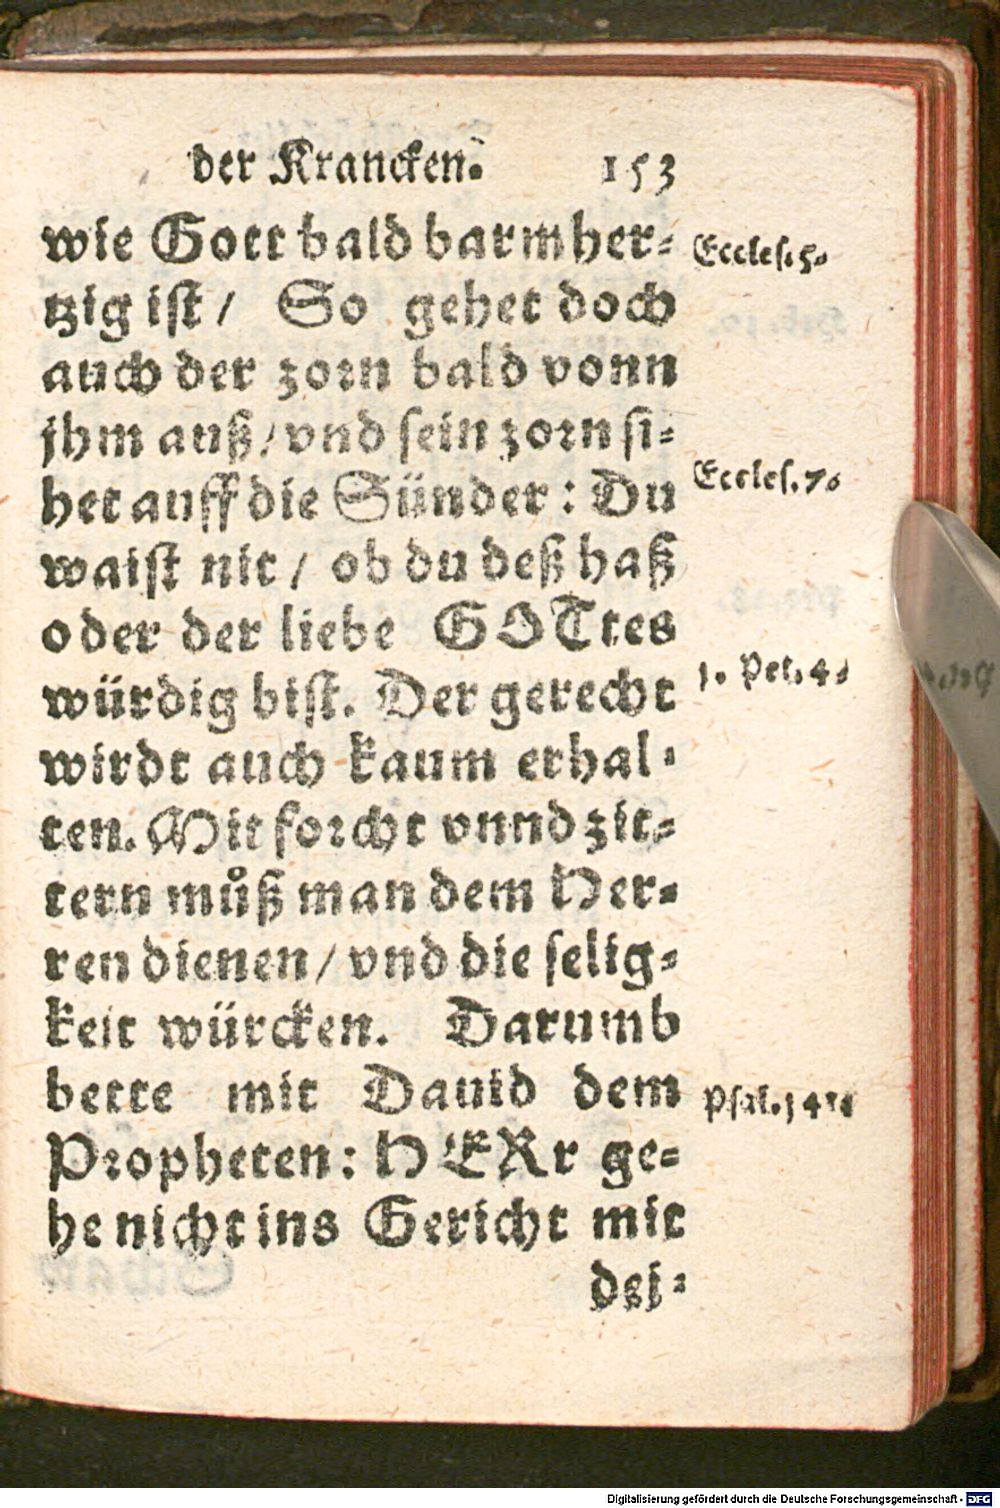 der Krancken. 153
wie Gott bald barmher⸗
tzig ist / So gehet doch
auch der zorn bald vonn
jhm auß / vnd sein zorn si⸗
het auff die Sünder : Du
waist nit / ob du deß haß
oder der liebe GOTtes
würdig bist. Der gerecht
wirdt auch kaum erhal⸗
ten. Mit forcht vnnd zit⸗
tern muͦß man dem Her⸗
ren dienen / vnd die selig⸗
keit würcken. Darumb
bette mit Dauid dem
Propheten : HERr ge⸗
he nicht ins Gericht mit
Eccles. 5.
Eccles. 7.
1. Pet. 4.
Psal. 141.
Digitalisierung gefördert durch die Deutsche Forschungsgemeinschaft - DFG